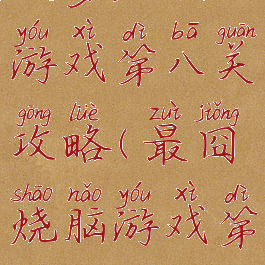 yóu xì dì bā guān
游戏第八关
gōng lüè zuì jiǒng
攻略(最囧
shāo nǎo yóu xì dì
烧脑游戏第